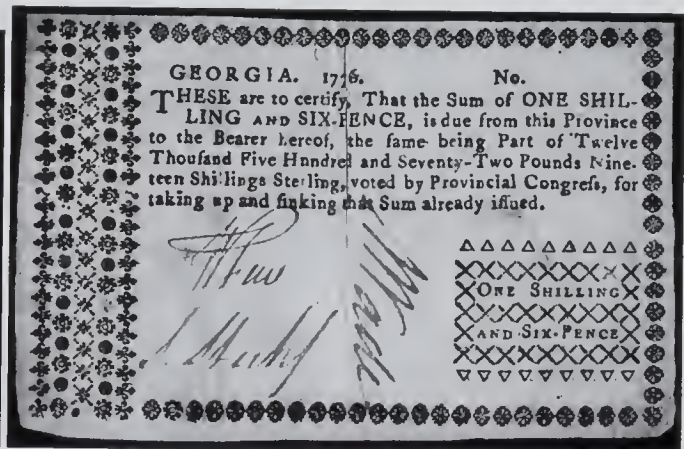 GEORGIA. 1776. No.
THESE are to certify, That the Sum of ONE SHIL-
LING AND SIX-PENCE, is due from this Province
to the Bearer hereof, the ſame being Part of Twelve
Thouſand Five Hnndred and Seventy-Two Pounds Nine-
teen Shillings Sterling, voted by Provincial Congreſs, for
taking up and ſinking that Sum already iſſued.
ONE SHILLING
AND SIX-PENCE